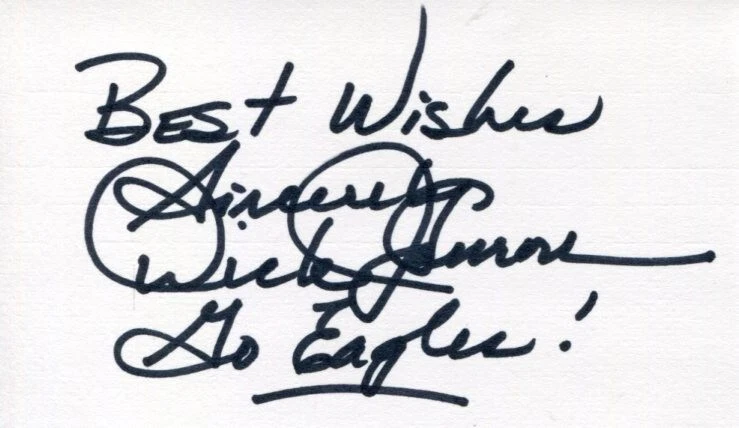 Best Wishes
Sincerely
Dick Jauron
Go Eagles!